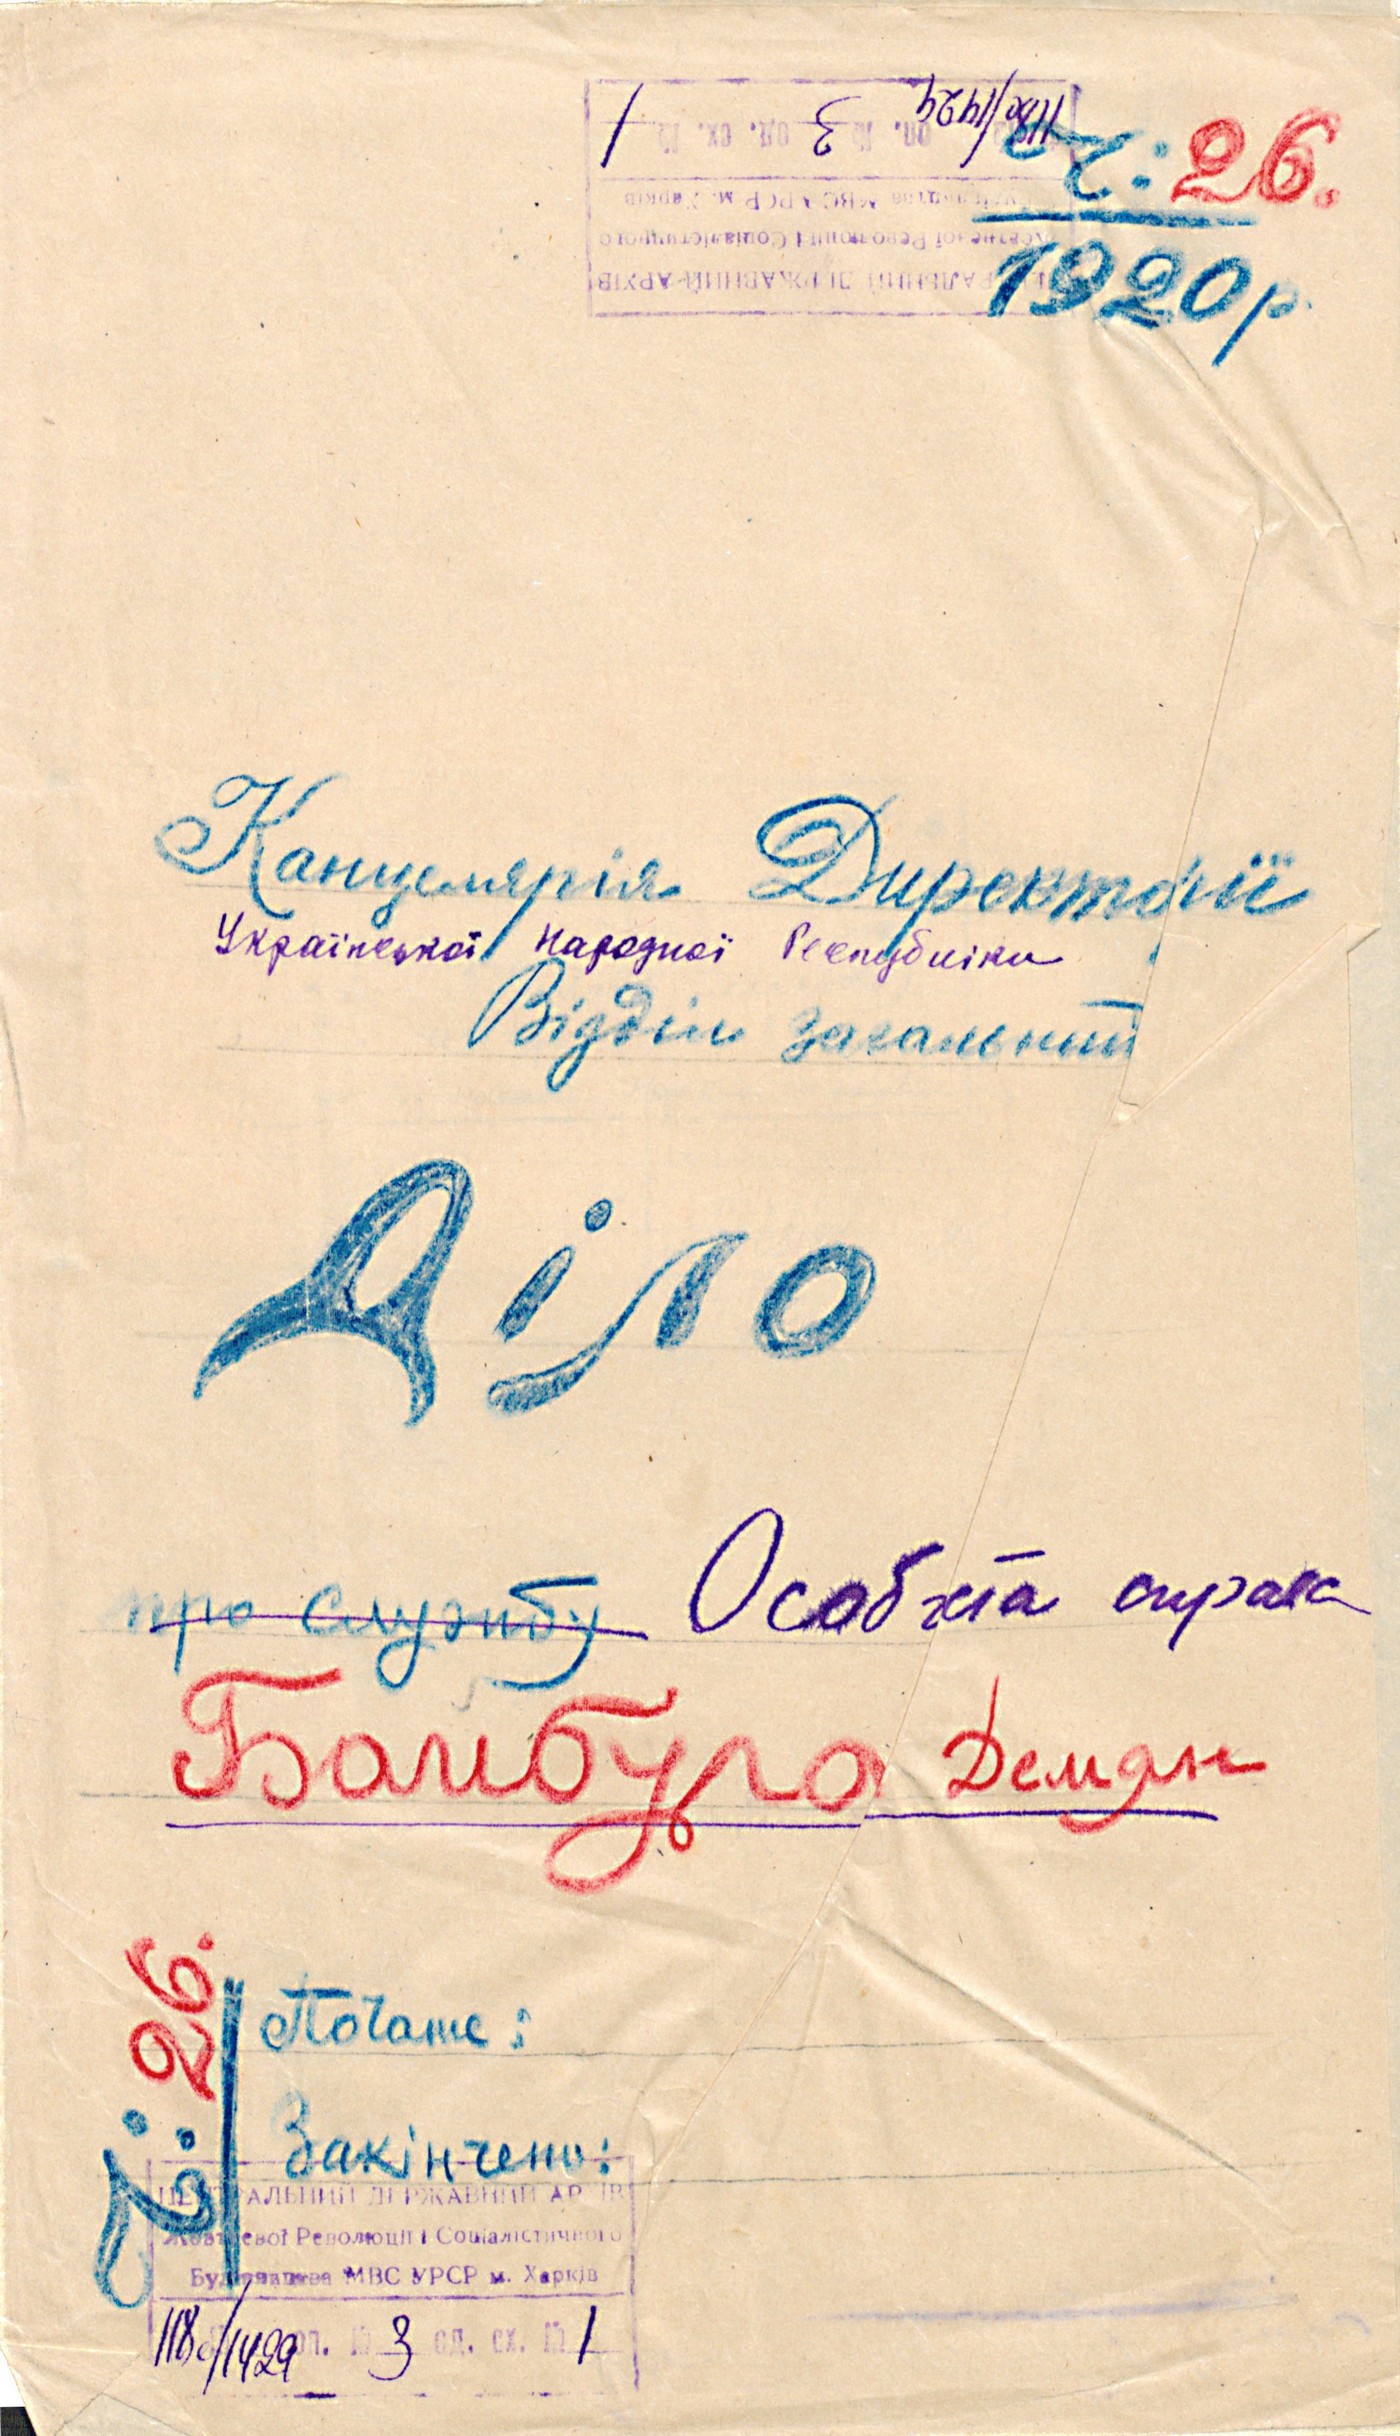 Ч: 26.
1920 р.
оп. № 3 од. сх. № 1
Будівництва МВС УРСР м. Харків
Жовтневої Революції і Соціалістичного
ЦЕНТРАЛЬНИЙ ДЕРЖАВНИЙ АРХІВ
Канцелярія Директорії
Української Народної Республіки
Відділ загальний
Діло
про службу Особиста справа
Бамбура Демян
Ч: 26.
Почате:
Закінчено:
ЦЕНТРАЛЬНИЙ ДЕРЖАВНИЙ АРХІВ
Жовтневої Революції і Соціалістичного
Будівництва МВС УРСР м. Харків
/1429 оп. № 3 од. сх. № 1